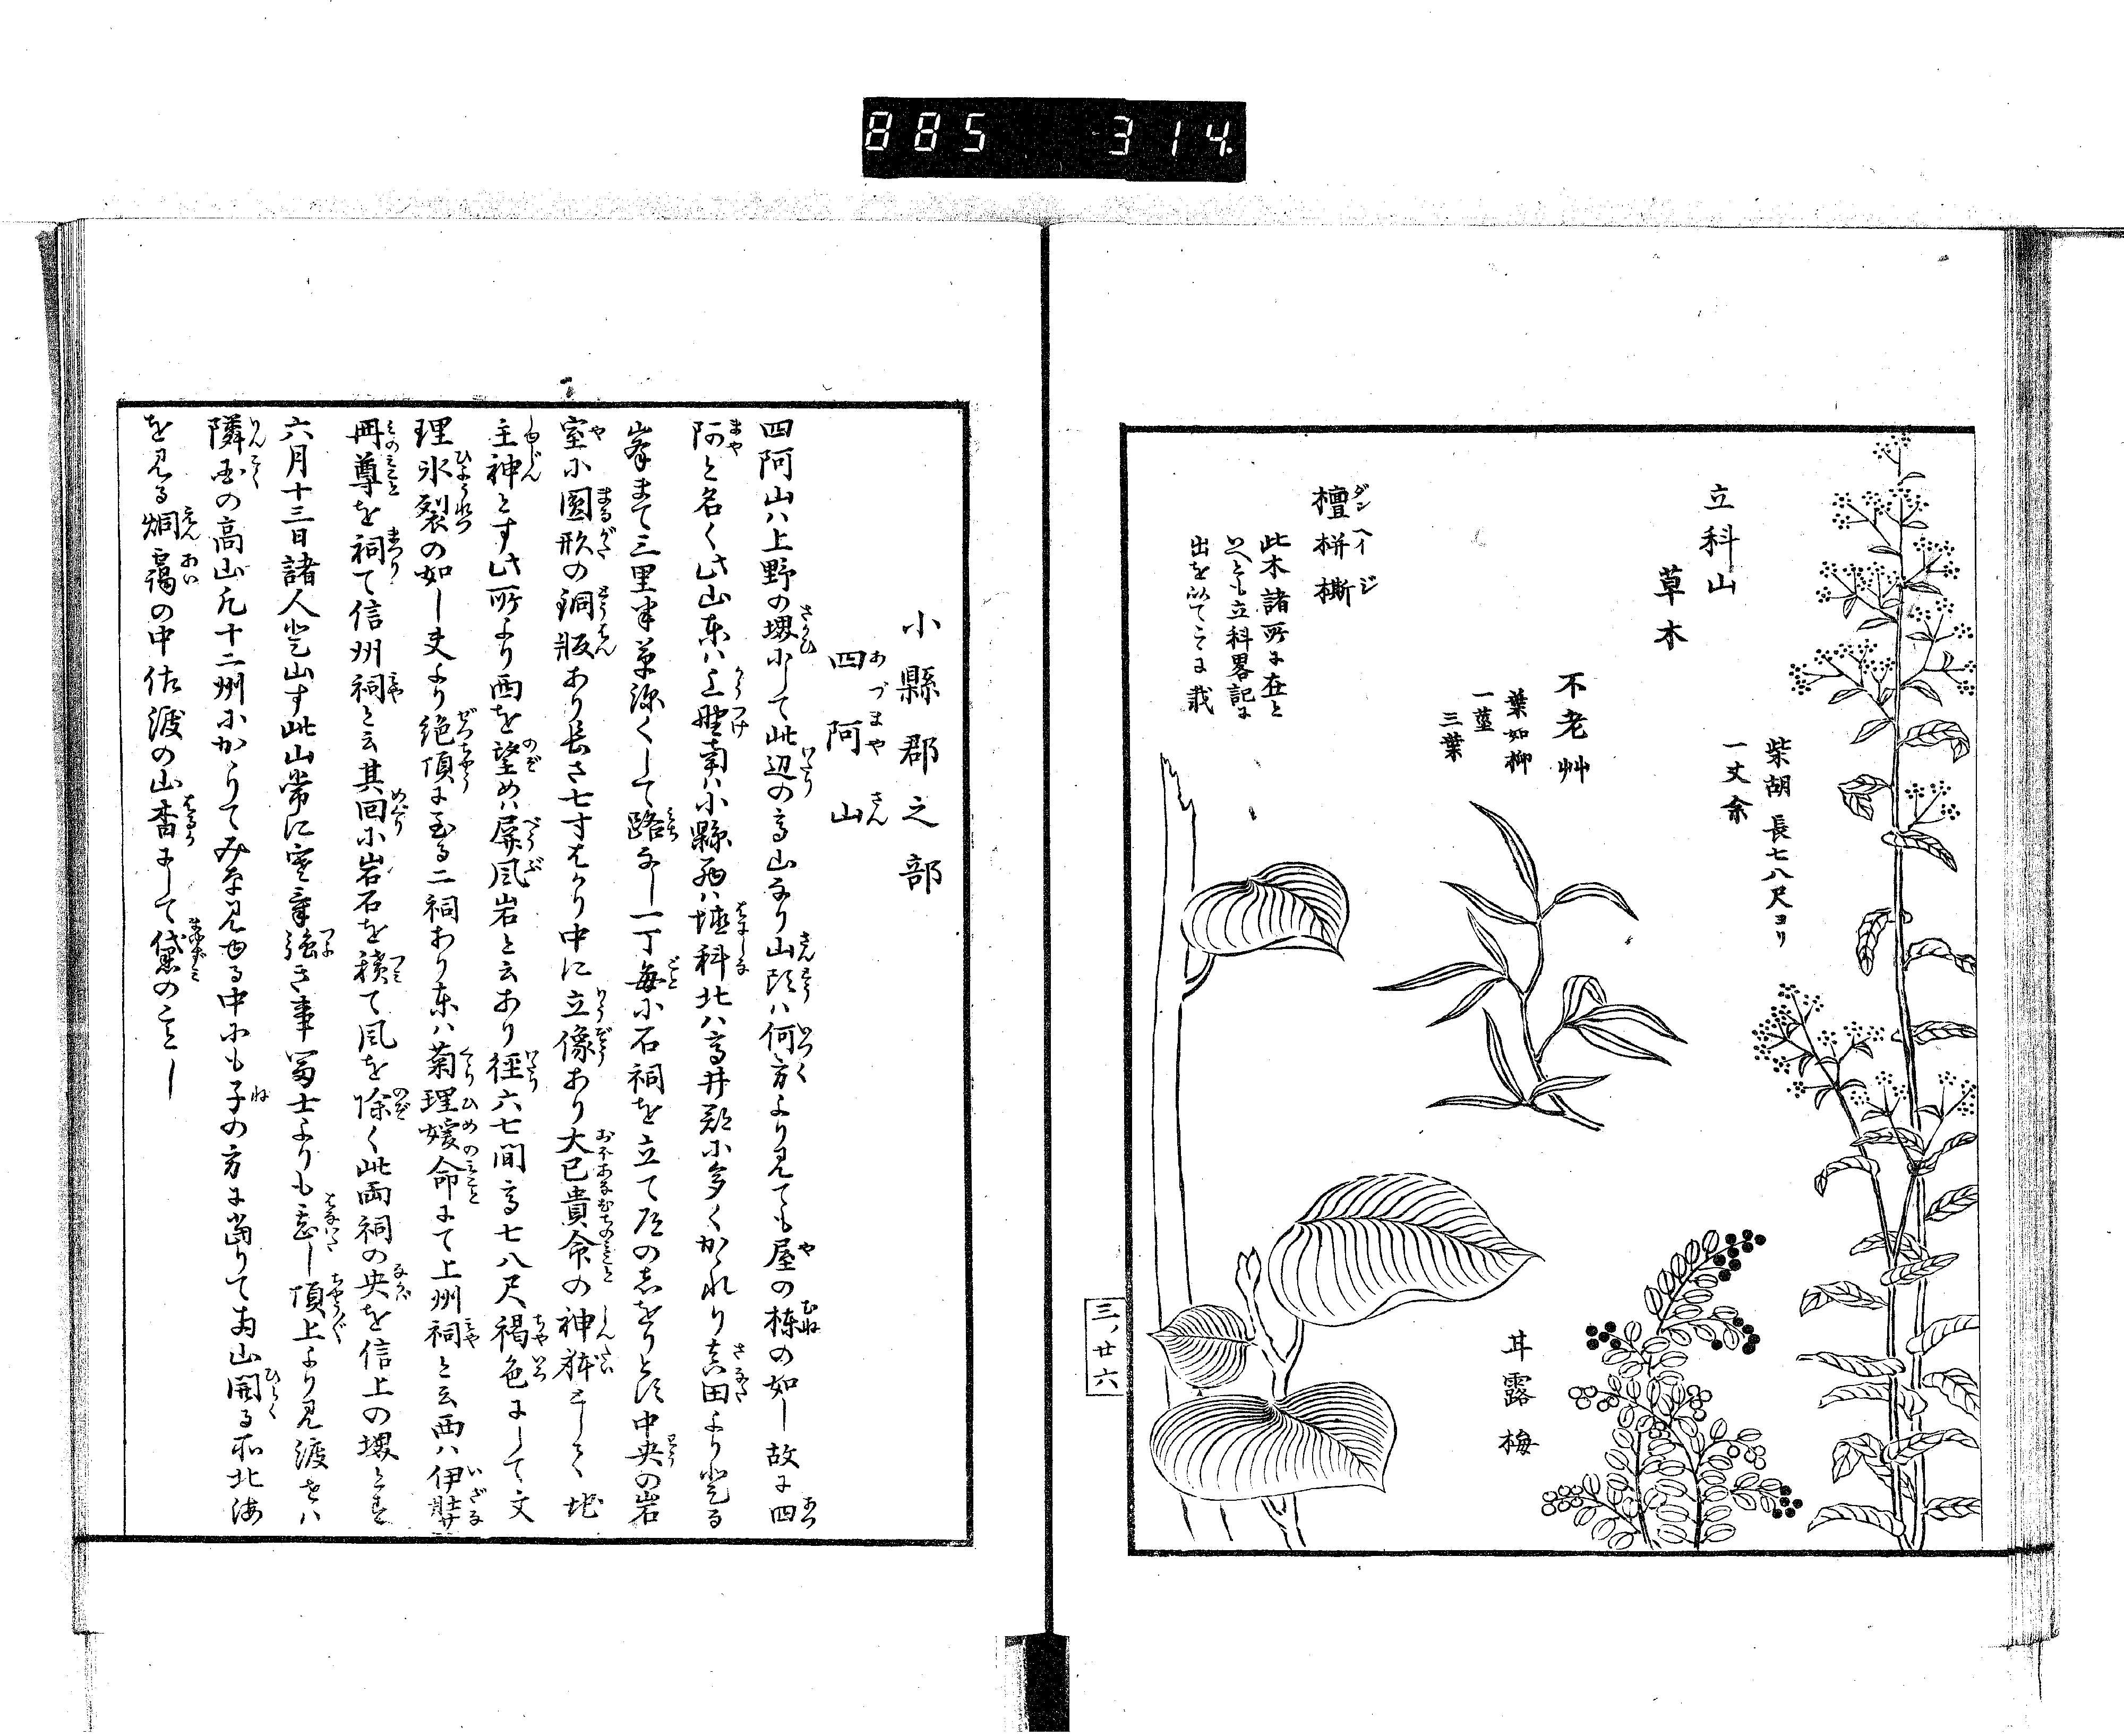 885 314
立科山
草木
柴胡 長七八尺ヨリ
一丈余
不老艸
葉如柳
一莖
三葉
檀栟㯕
ダンヘイジ
此木諸所に在と
いへとも立科畧記に
出を以てこゝに載
耳露梅
三ノ廿六
小縣郡之部
四阿山
あづまやさん
四阿山ハ上野の堺にして此辺の高山なり山頂ハ何方より見ても屋の棟の如し故に四
阿と名く此山東ハ上野南ハ小縣西ハ埴科北ハ高井郡に多くかゝれり真田より登る
峯まて三里半草深くして路なし一丁毎に石祠を立て道のしをりとす中央の岩
室に圓形の銅版あり長さ七寸はかり中に立像あり大己貴命の神躰にして地
主神とす此所より西を望めハ屏風岩と云あり径六七間高七八尺褐色にして文
理氷裂の如し夫より絶頂に至る二祠あり東ハ菊理媛命にて上州祠と云西ハ伊弉
冊尊を祠て信州祠と云其回に岩石を積て風を除く此両祠の央を信上の堺とす
六月十三日諸人登山す此山常に雲霧強き事冨士よりも甚し頂上より見渡せハ
隣国の高山凡十二州にかゝりてみな見ゆる中にも子の方に當りて両山開る所北海
を見る烟靄の中佐渡の山杳にして黛のことし